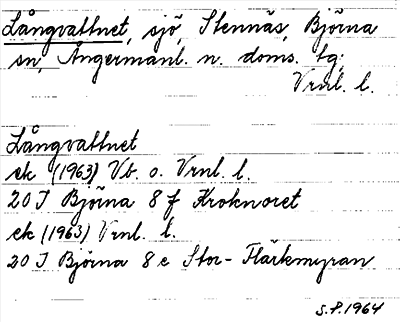 Långvattnet, sjö, Stennäs, Björna
sn, Ångermanl. n. doms. tg.
Vrnl. l.
Långvattnet
ek (1963) Vb. o. Vrnl. l.
20 J Björna 8 f Kroknoret
ek (1963) Vrnl. l.
20 J Björna 8 e Stor-Flärkmyran
S.P. 1964